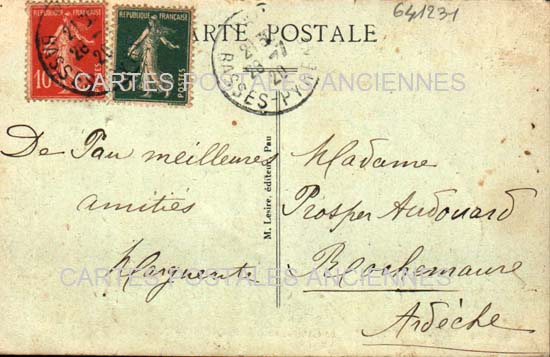 CARTE POSTALE
641231
REPUBLIQUE FRANÇAISE
10
POSTES
REPUBLIQUE FRANÇAISE
5
POSTES
BASSES-PYR
28 -7
20
CARTES POSTALES ANCIENNES
De Pau meilleures
amitiés
Marguerite
M. Lesire, éditeur, Pau
Madame
Prosper Audouard
Rochemaure
Ardèche
CARTES POSTALES ANCIENNES